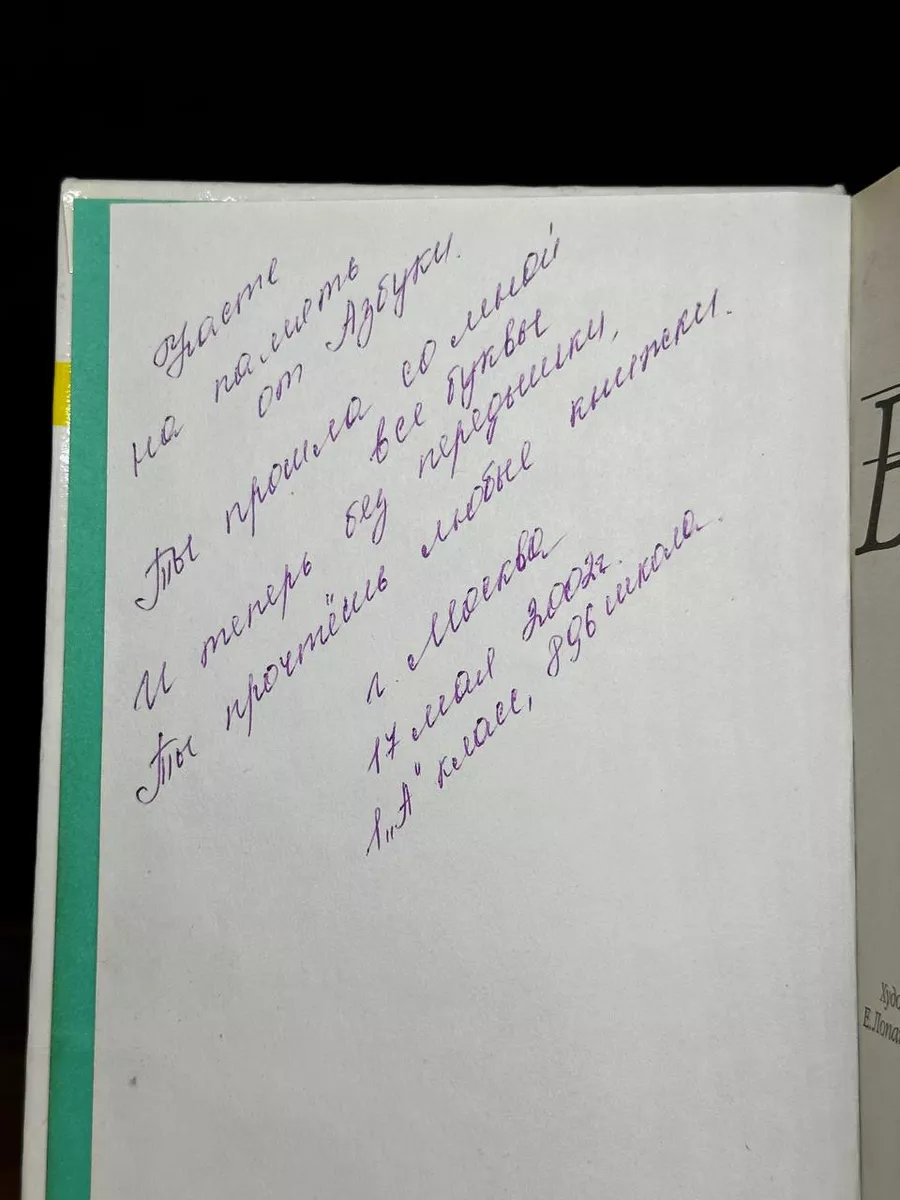 Насте
на память
от Азбуки.
Ты прошла со мной
все буквы
И теперь без передышки,
Ты прочтёшь любые книжки.
г. Москва
17 мая 2002г.
1 „А" класс, 896 школа.
Худо
Е.Лопа